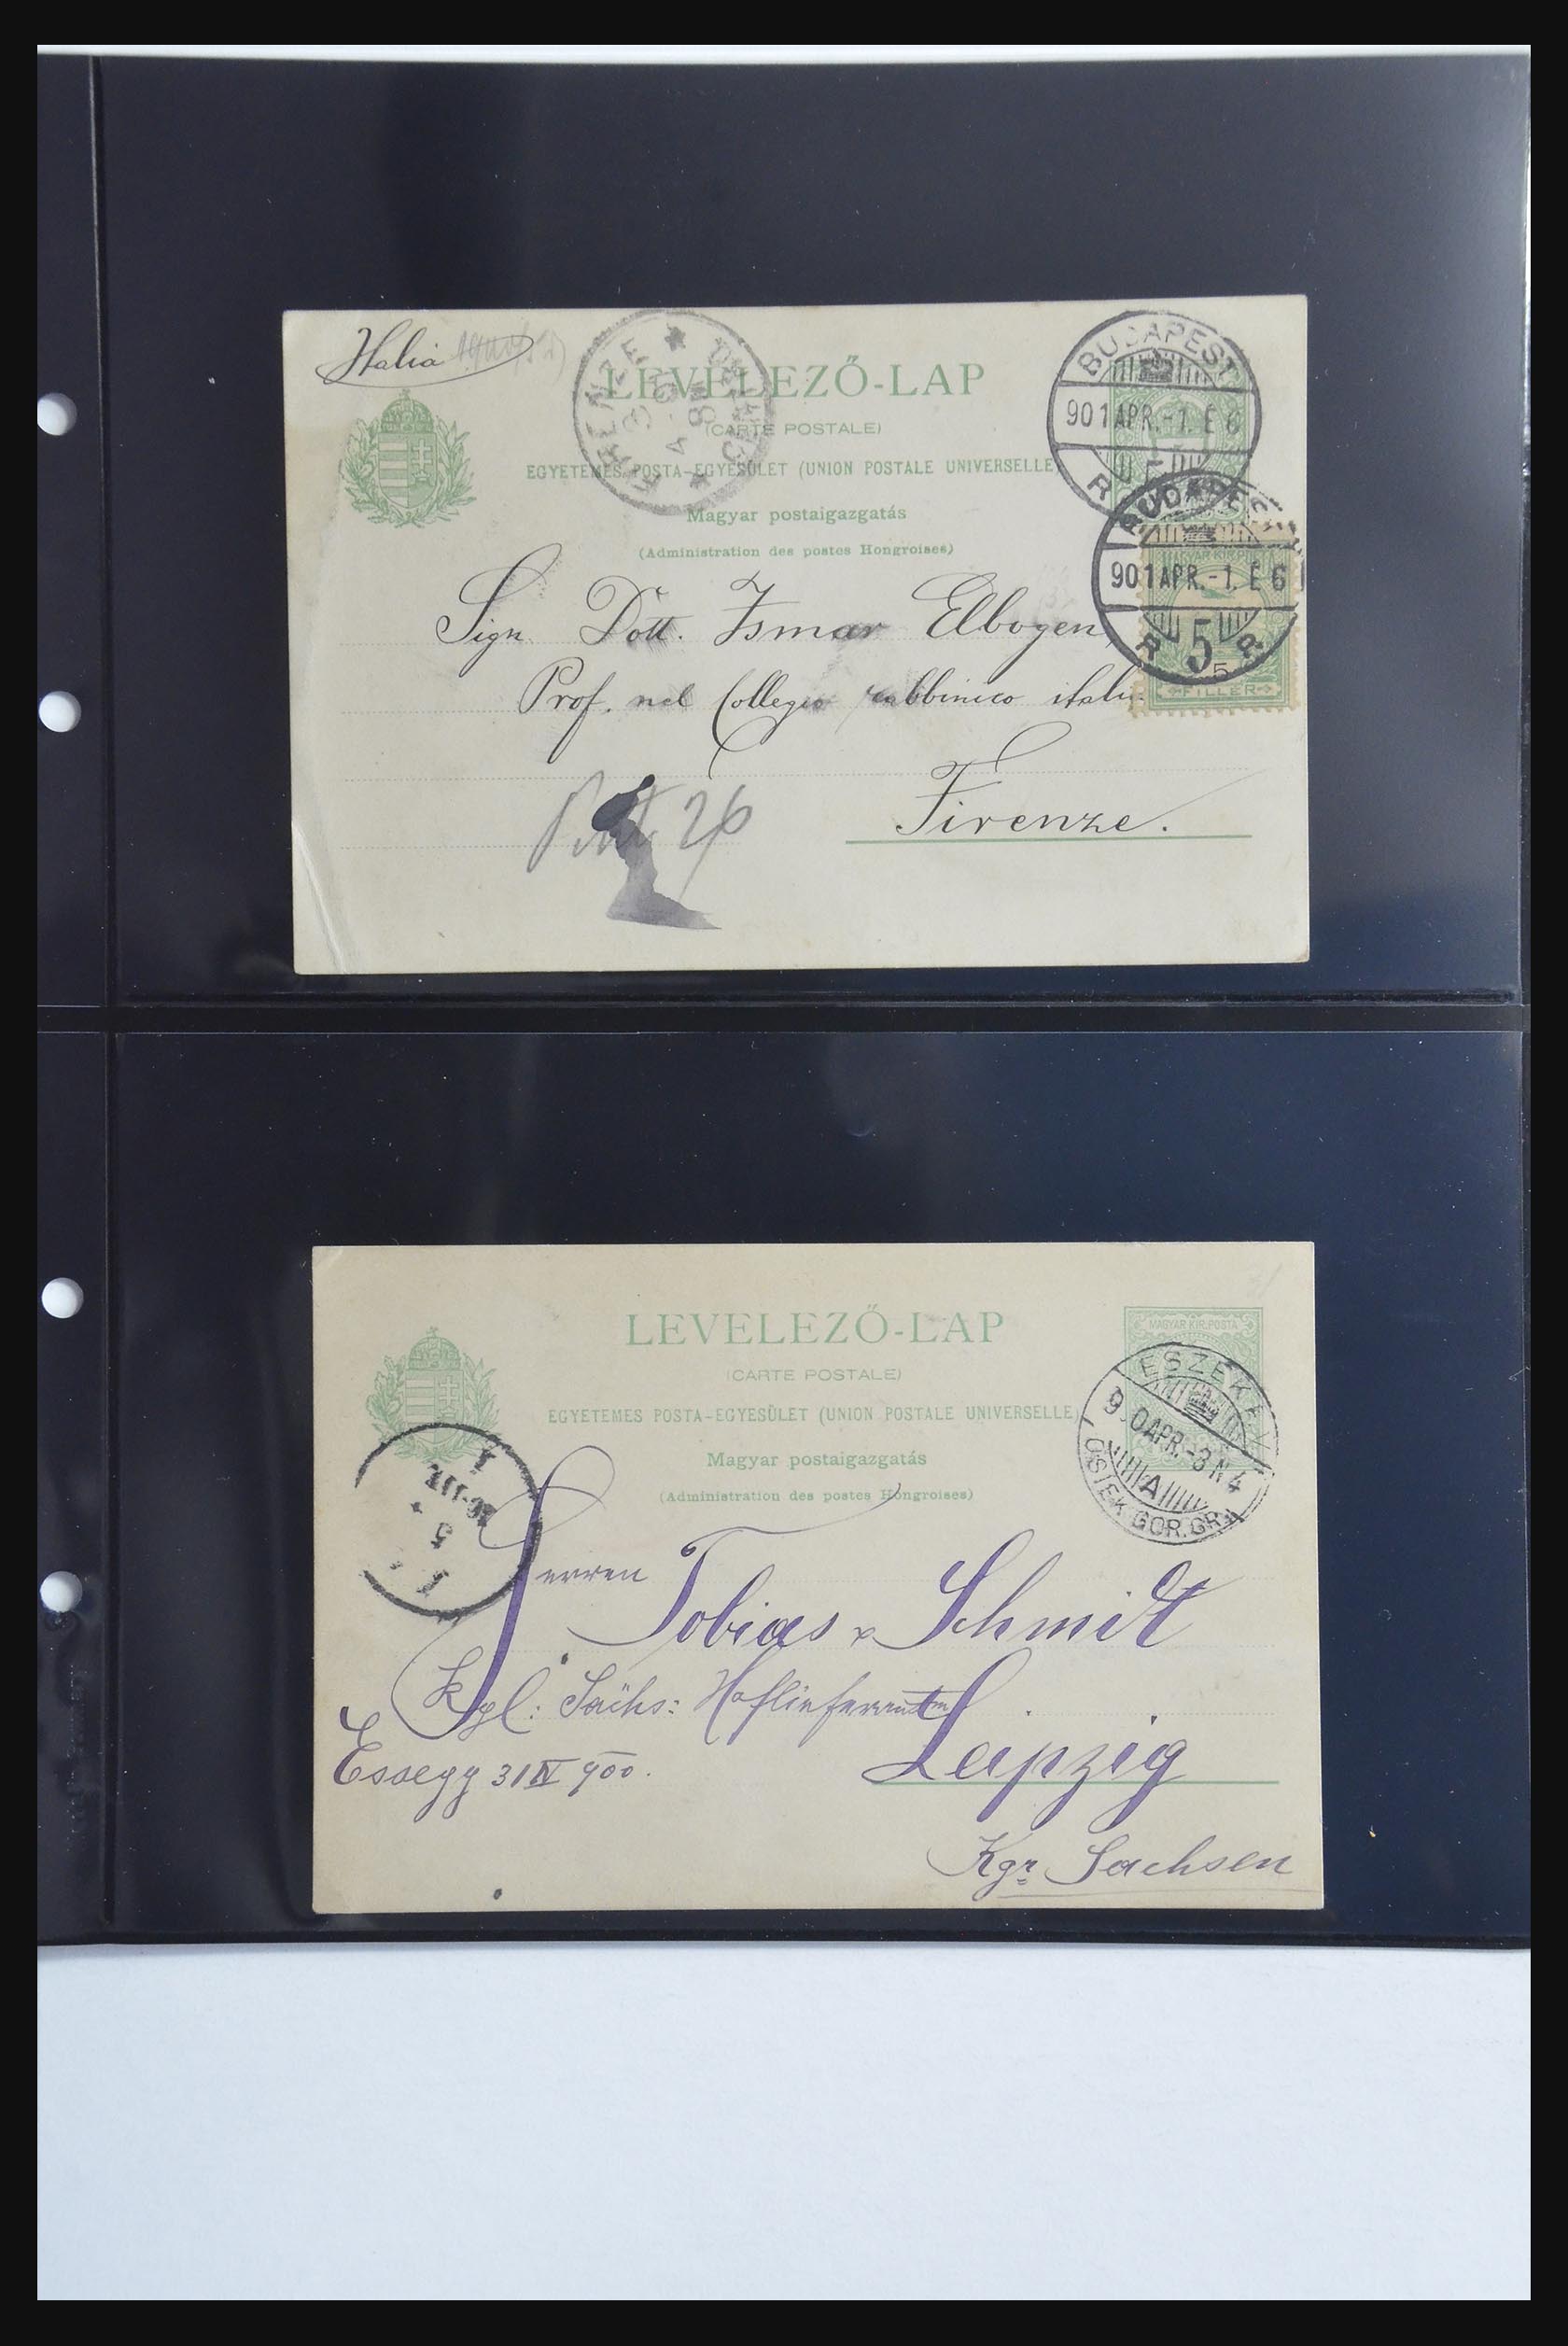 Italia
LEVELEZŐ-LAP
(CARTE POSTALE)
EGYETEMES POSTA-EGYESÜLET (UNION POSTALE UNIVERSELLE)
Magyar postaigazgatás
(Administration des postes Hongroises)
FIRENZE
BUDAPEST
901 APR.-1. E 6
BUDAPEST
901 APR.-1. E 6
MAGYAR KIR. POSTA
5
FILLÉR
Sign Dott. Ismar Elbogen,
Prof. nel Collegio rabbinico
26
Firenze.
LEVELEZŐ-LAP
(CARTE POSTALE)
EGYETEMES POSTA-EGYESÜLET (UNION POSTALE UNIVERSELLE)
Magyar postaigazgatás
(Administration des postes Hongroises)
MAGYAR KIR. POSTA
ESZÉK
900 APR.-3 N 4
A
OSIEK GOR. GR.
Herren
Tobias & Schmidt
Kgl: Sächs: Hoflieferanten
Leipzig
Essegg 31 IV 900.
Kgr. Sachsen